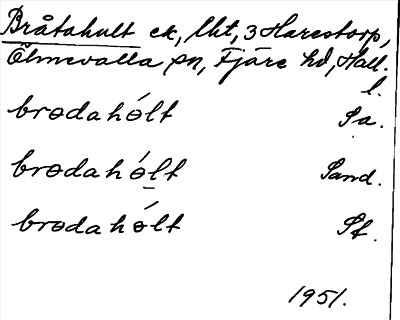 Bråtahult ek, lht, 3 Harestorp,
Ölmevalla sn, Fjäre hd, Hall.
l.
brədahólt Sa.
brədahólt Sand.
brədahólt Sf.
1951.